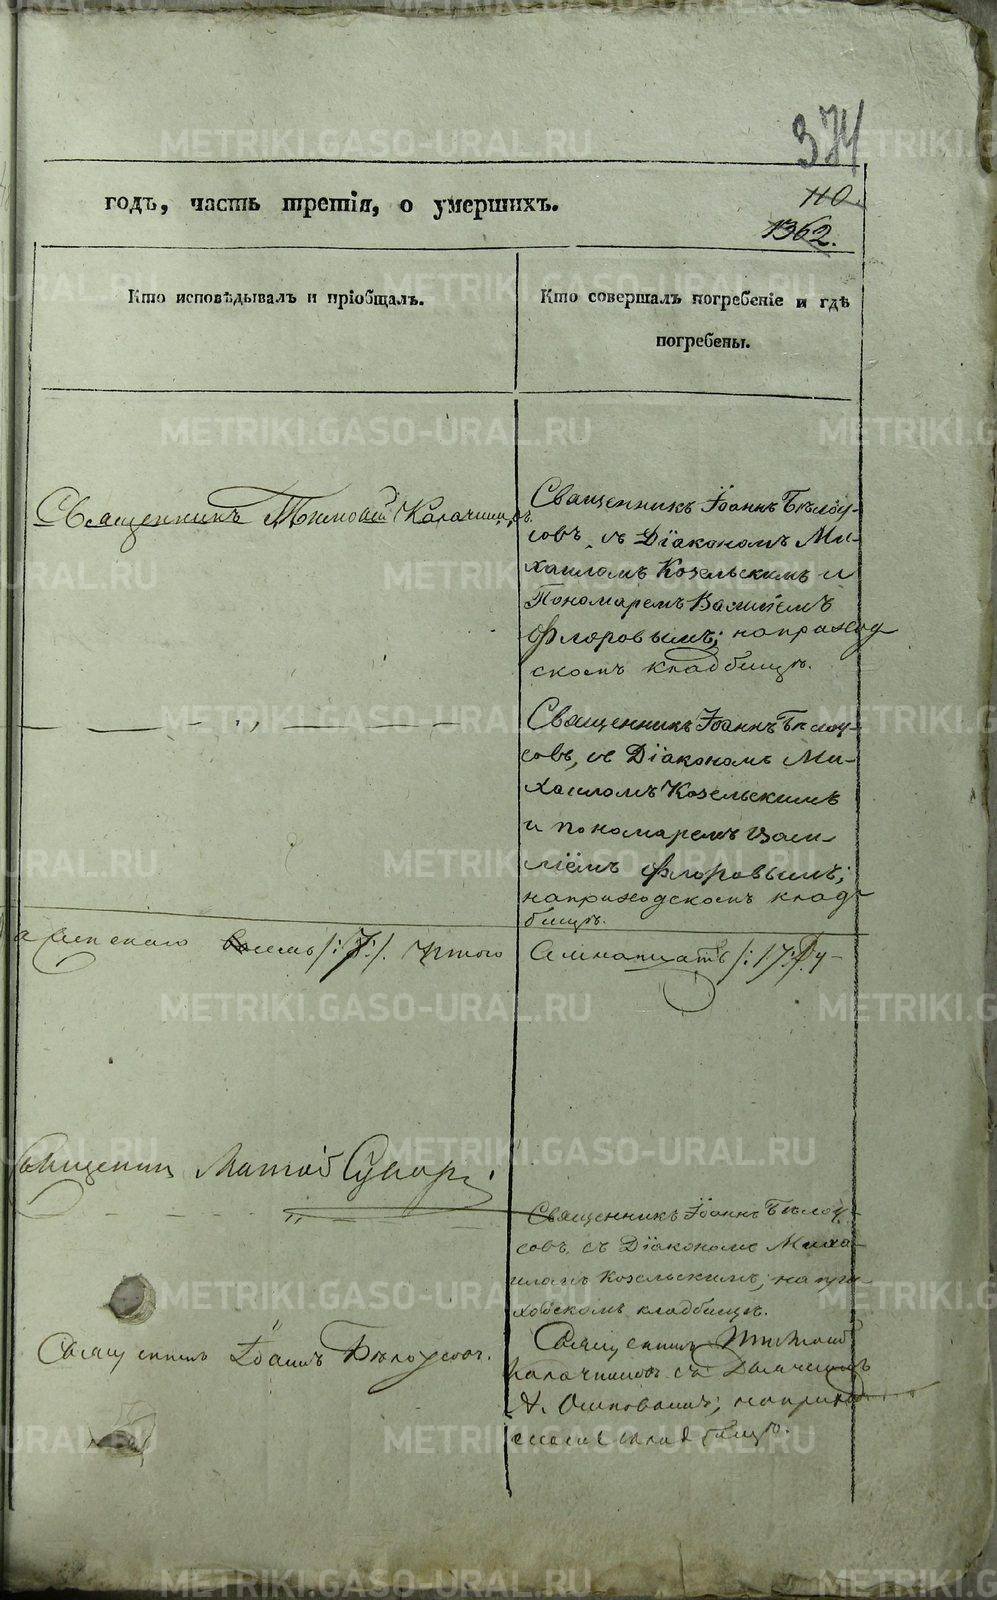 374
годъ, часть третія, о умершихъ.
110.
1362.
Кто исповѣдывалъ и пріобщалъ.
Кто совершалъ погребеніе и гдѣ
погребены.
Священникъ Тимофей Калачниковъ.
Священникъ Іоаннъ Бѣлоу-
совъ, съ Діакономъ Ми-
хаиломъ Козельскимъ и
Пономаремъ Василіемъ
Флоровымъ; наприход
скомъ кладбищѣ.
— — — „ — — —
Священникъ Іоаннъ Бѣлоу-
совъ, съ Діакономъ Ми-
хаиломъ Козельскимъ
и пономаремъ Васи-
ліемъ Флоровымъ;
наприходскомъ клад-
бищѣ.
женскаго семь /:7:/. Итого
Семнатцать /:17:/ Ду-
Священникъ Матѳей
— — — „ — —
Священникъ Іоаннъ Бѣлоу-
совъ съ Діакономъ Миха-
иломъ Козельскимъ; напри-
ходскомъ кладбищѣ.
Священникъ Іоаннъ Бѣлоусовъ.
Священникъ Тимофей
Калачниковъ съ Дьячкомъ
А. Осиповымъ; наприход
скомъ кладбищѣ.
METRIKI.GASO-URAL.RU